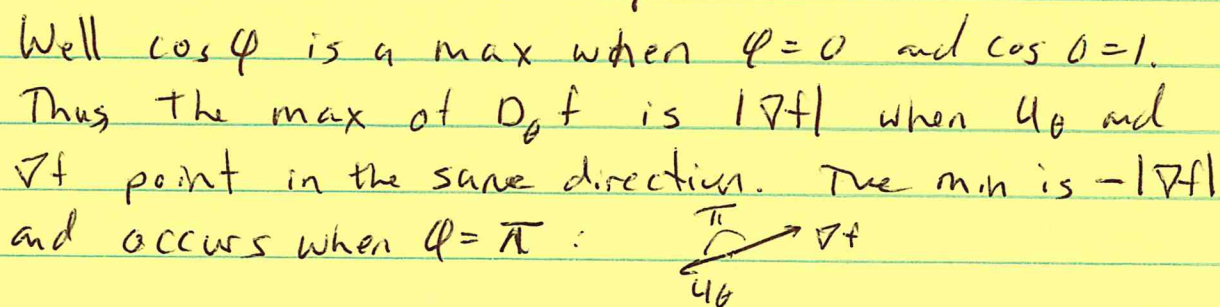 Well cos φ is a max when φ = 0 and cos 0 = 1.
Thus the max of D_θ f is |∇f| when u_θ and
∇f point in the same direction. The min is -|∇f|
and occurs when φ = π :
π
∇f
u_θ